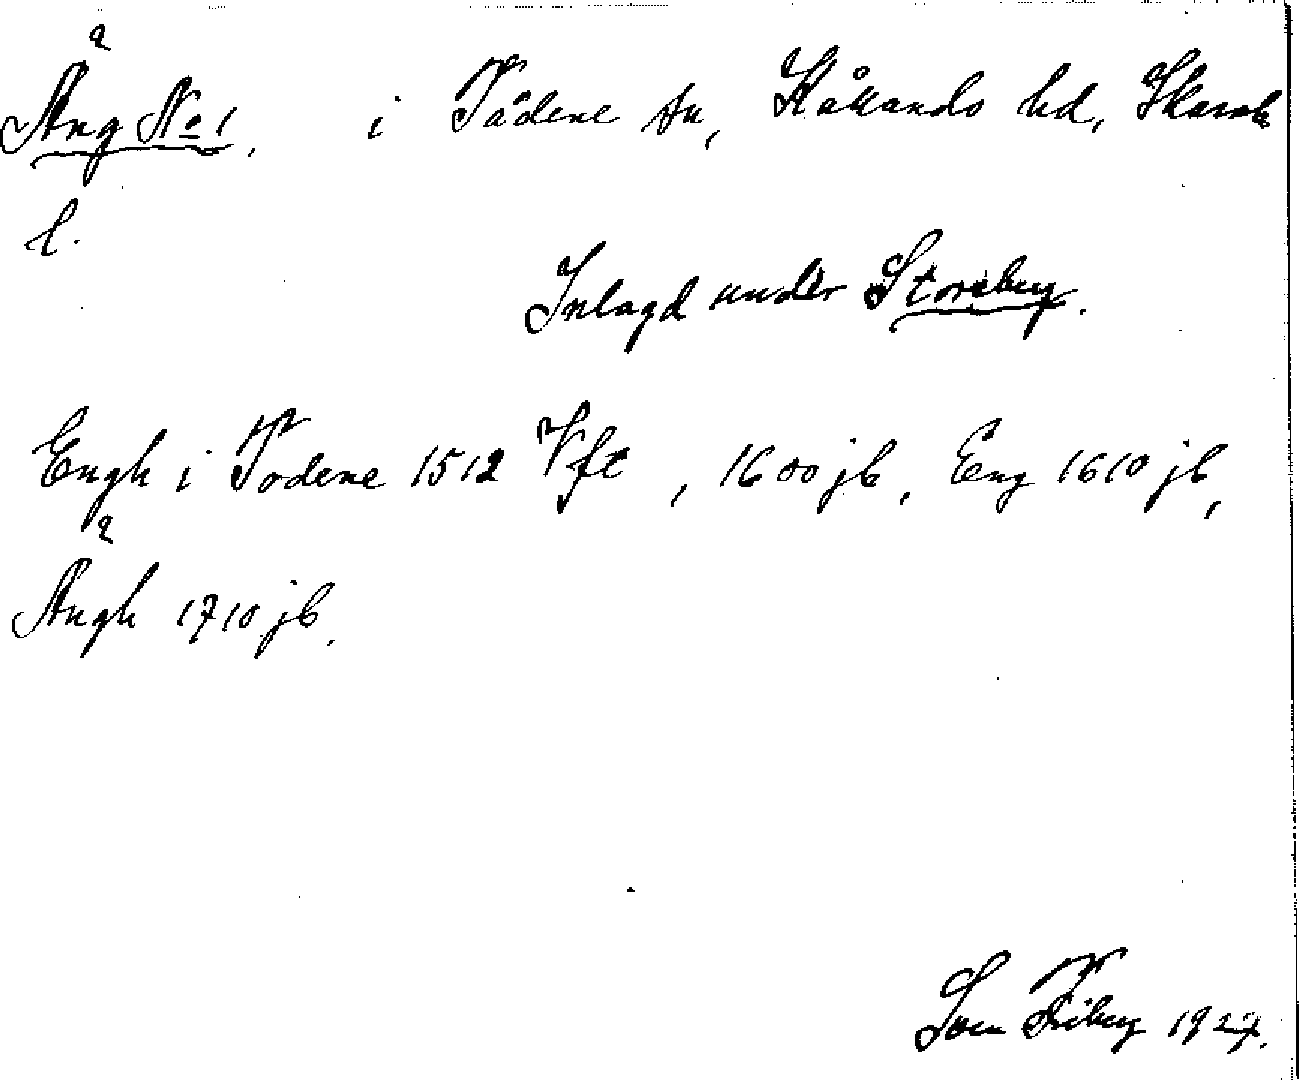 Äng No 1, i Tådene sn, Kållands hd, Skarab.
l.
Inlagd under Storeberg.
Engh i Todene 1512 Vft, 1600 jb, Eng 1610 jb,
Ängh 1710 jb.
Sven Friberg 1927.